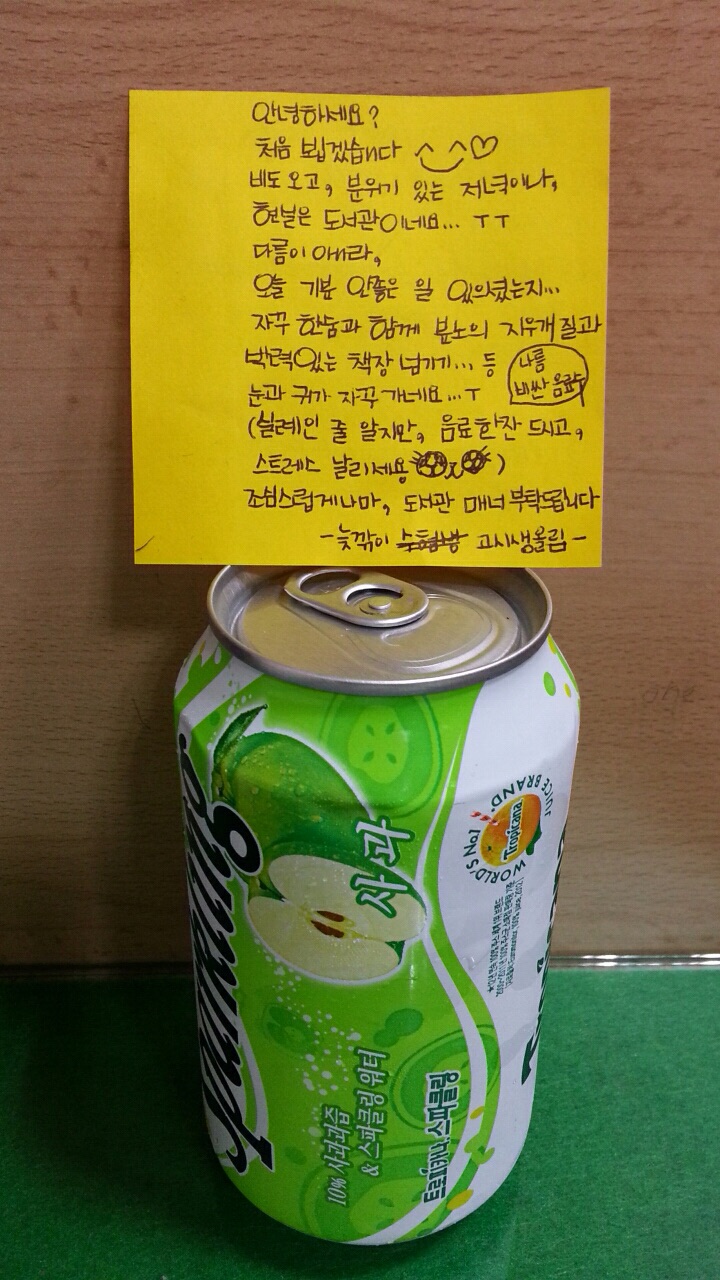 안녕하세요?
처음 뵙겠습니다 ^_^♡
비도 오고, 분위기 있는 저녁이나,
현실은 도서관이네요... ㅜㅜ
다름이 아니라,
오늘 기분 안좋은 일 있으셨는지...
자꾸 한숨과 함께 분노의 지우개질과
박력있는 책장 넘기기... 등
나름
비싼 음료수
눈과 귀가 자꾸 가네요...ㅜ
(실례인 줄 알지만, 음료한잔 드시고,
스트레스 날리세용)
조심스럽게나마, 도서관 매너 부탁드립니다
-늦깎이 고시생올림-
Sparkling
사과
WORLD'S No1 JUICE BRAND.
Tropicana
10% 사과과즙
& 스파클링 워터
트로피카나 스파클링